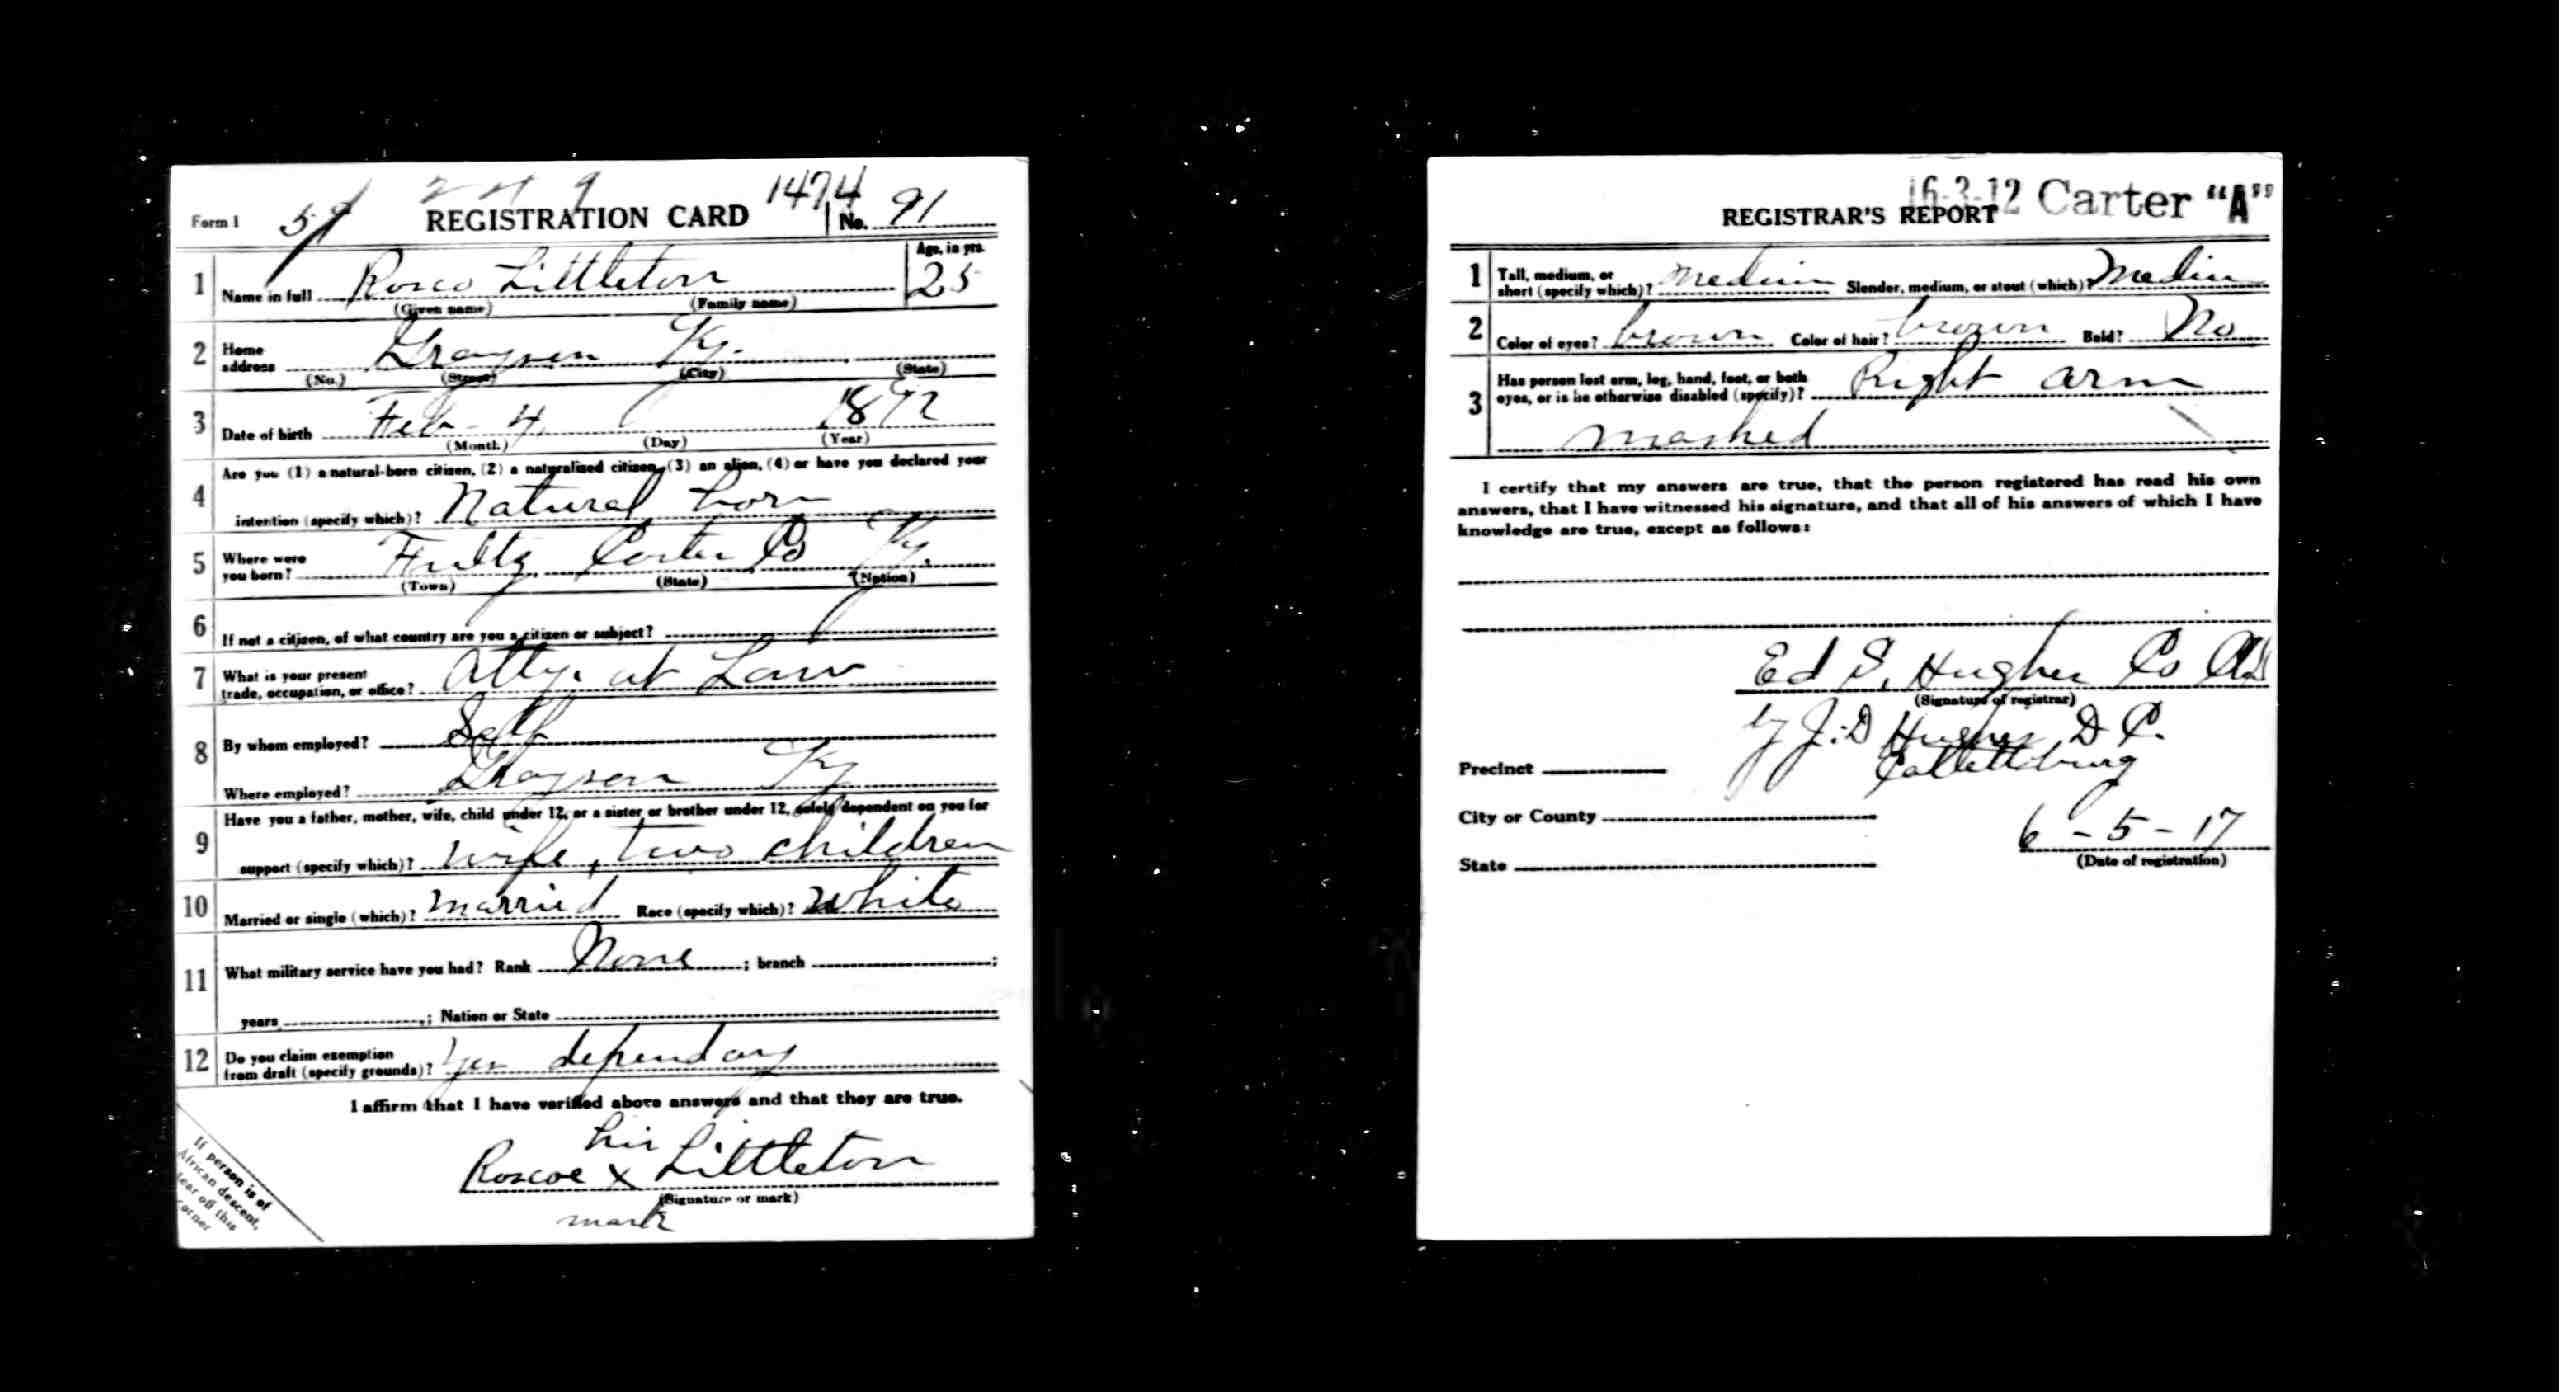 1474
Form 1 REGISTRATION CARD No. 91
1 Name in full Rosco Littleton Age, in yrs. 25
(Given name) (Family name)
2 Home address Grayson Ky.
(No.) (Street) (City) (State)
3 Date of birth Feb - 4, 1892
(Month.) (Day) (Year)
4 Are you (1) a natural-born citizen, (2) a naturalized citizen, (3) an alien, (4) or have you declared your
intention (specify which)? Natural born
5 Where were you born? Fultz, Carter Co Ky.
(Town) (State) (Nation)
6 If not a citizen, of what country are you a citizen or subject?
7 What is your present trade, occupation, or office? Atty. at Law
8 By whom employed? Self
Where employed? Grayson Ky
9 Have you a father, mother, wife, child under 12, or a sister or brother under 12, solely dependent on you for
support (specify which)? wife, two children
10 Married or single (which)? married Race (specify which)? white
11 What military service have you had? Rank None ; branch ;
years ; Nation or State
12 Do you claim exemption from draft (specify grounds)? Yes dependary
I affirm that I have verified above answers and that they are true.
his
Roscoe x Littleton
(Signature or mark)
mark
If person is of
African descent,
tear off this
corner
16-3-12 Carter "A"
REGISTRAR'S REPORT
1 Tall, medium, or short (specify which)? Medium Slender, medium, or stout (which)? Medium
2 Color of eyes? brown Color of hair? brown Bald? No
3 Has person lost arm, leg, hand, foot, or both
eyes, or is he otherwise disabled (specify)? Right arm
mashed
I certify that my answers are true, that the person registered has read his own
answers, that I have witnessed his signature, and that all of his answers of which I have
knowledge are true, except as follows:
Ed S. Hughes Co
(Signature of registrar)
by J. D Hughes D C.
Precinct Catlettsburg
City or County
6 - 5 - 17
State (Date of registration)